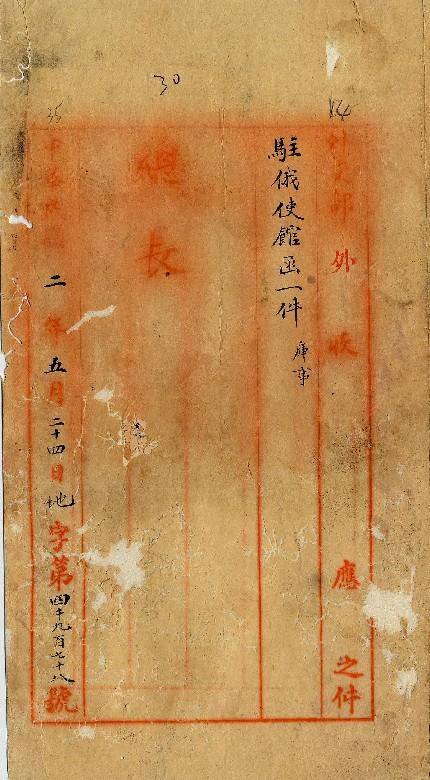 30
35
駐俄使館函一件
庫事
外交部 外 收 應 之件
總長
中華民國二年五月二十四日地字第四千九百七十八號